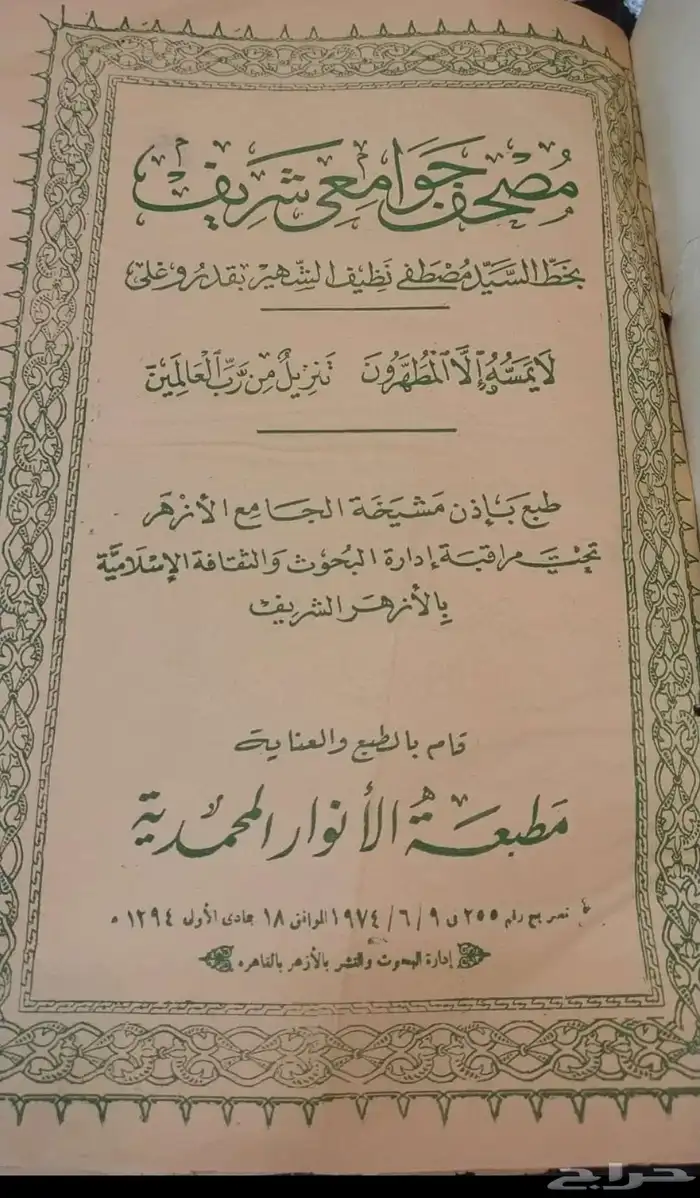 مُصْحَف جَوَامِعِي شَرِيف
بخَطّ السَّيِّد مُصْطَفَى نَظِيف الشَّهِير بقَدرُوغلى
لَا يَمَسُّهُ إِلَّا الْمُطَهَّرُونَ تَنزِيلٌ مِن رَّبِّ الْعَالَمِينَ
طبع بإذن مَشيَخَة الجَامِع الأزهَر
تحت مراقبة إدارة البُحُوث وَالثقافة الإسْلَاميَّة
بِالأزهَر الشريف
قام بالطبع والعناية
مَطبعَة الأنوار المحمدية
تصريح رقم ٢٥٥ في ٩ / ٦ / ١٩٧٤ الموافق ١٨ جمادى الأول ١٢٩٤ ه
إدارة البحوث والنشر بالأزهر بالقاهره
حراج